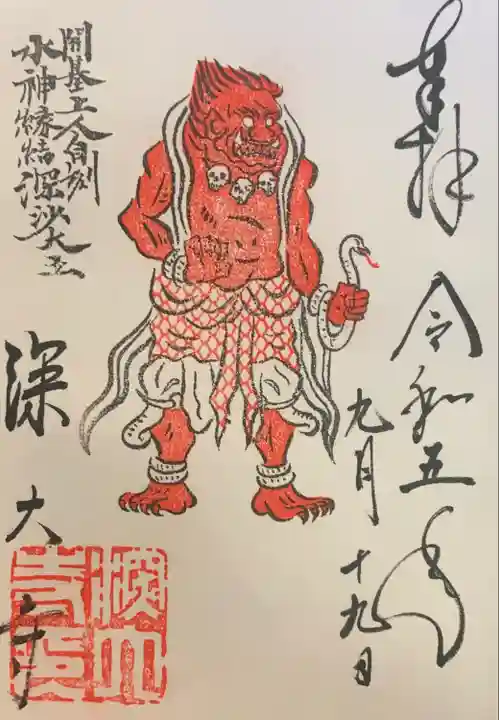 奉拝
令和五年
九月十九日
開基上人自刻
水神縁結深沙大王
深大寺